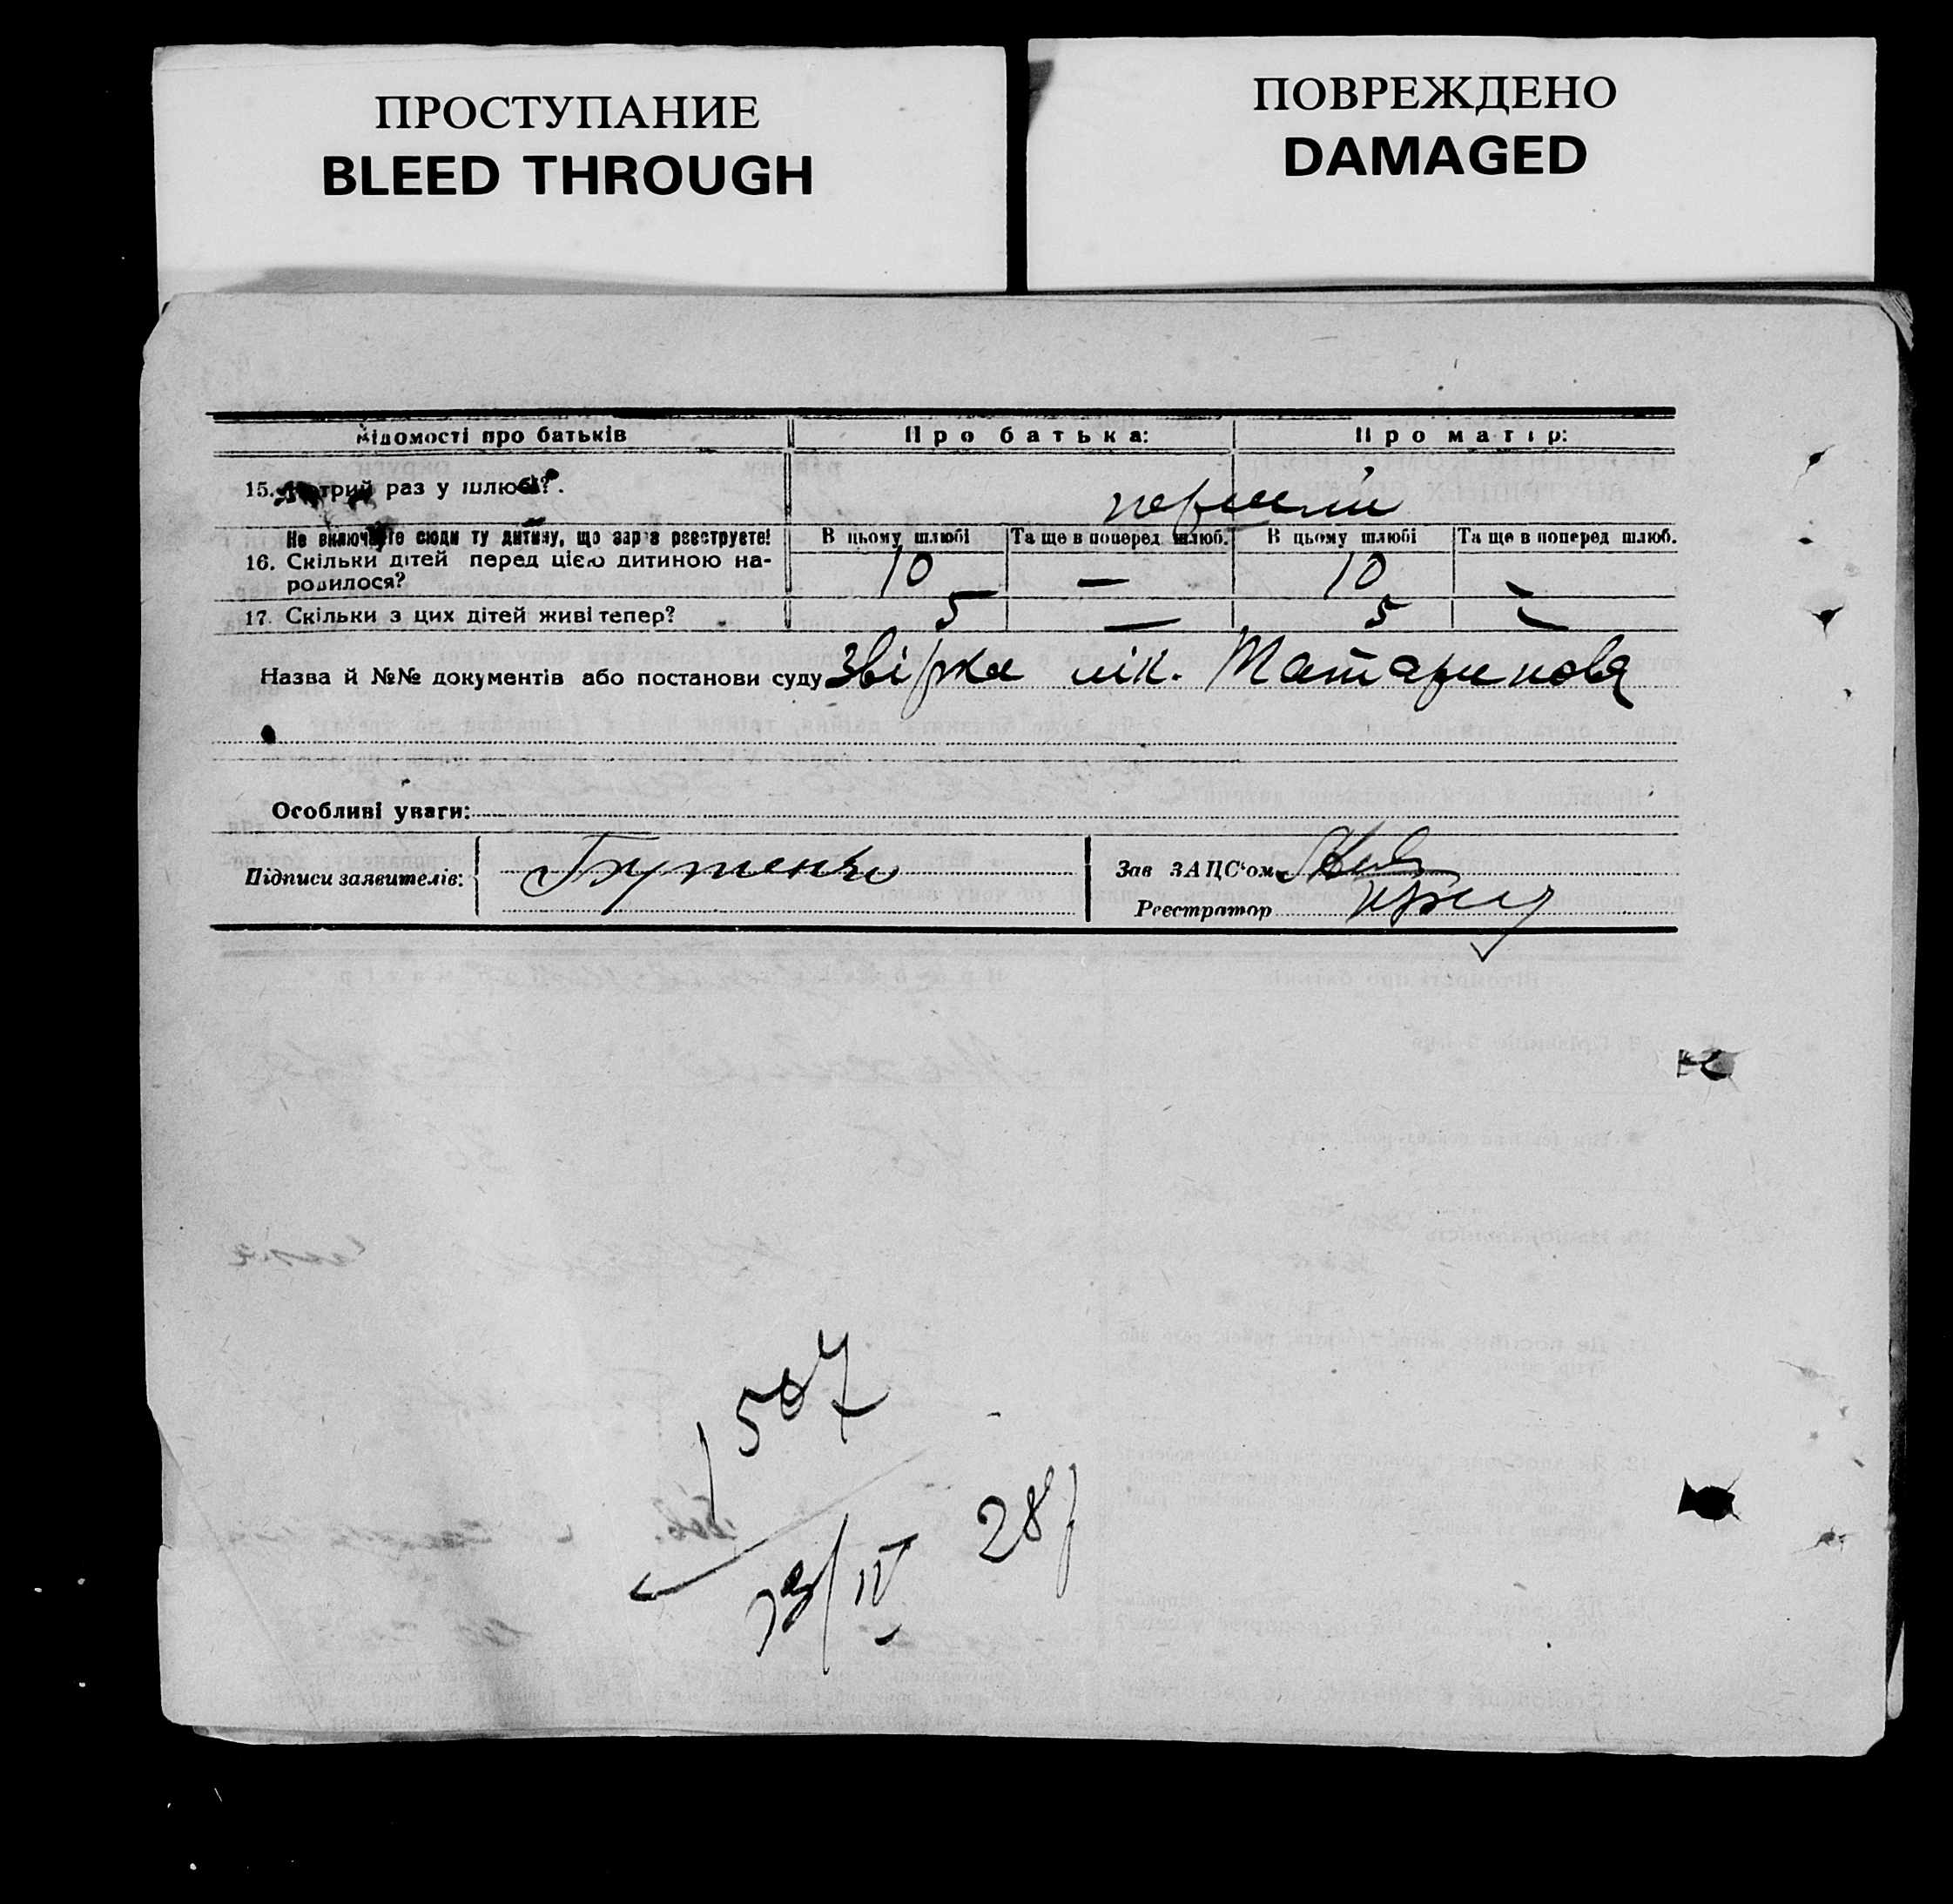 ПРОСТУПАНИЕ
BLEED THROUGH
ПОВРЕЖДЕНО
DAMAGED
Відомості про батьків Про батька: Про матір:
15. Котрий раз у шлюбі? перший
Не включайте сюди ту дитину, що зараз реєструєте! В цьому шлюбі Та ще в поперед шлюб. В цьому шлюбі Та ще в поперед шлюб.
16. Скільки дітей перед цією дитиною на-
родилося? 10 — 10 —
17. Скільки з цих дітей живі тепер? 5 — 5 —
Назва й №№ документів або постанови суду Звірка лік. Татаринова
Особливі уваги:
Підписи заявителів: Зав ЗАЦС'ом
Реєстратор
1507
28/IV 28